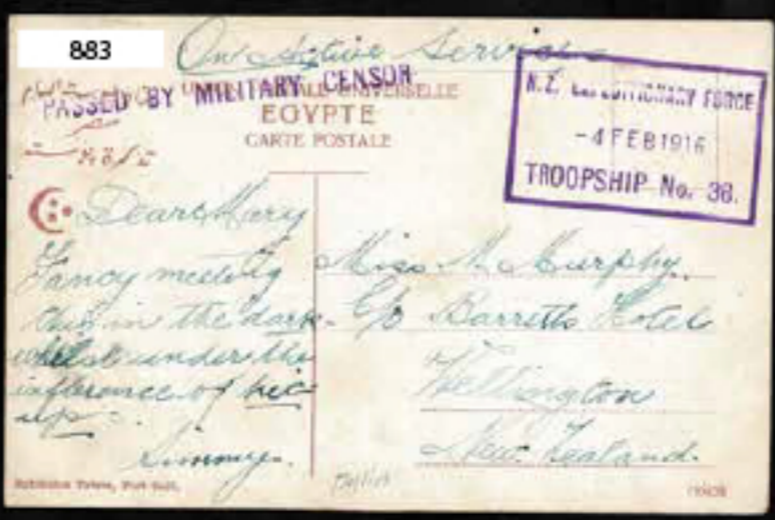 883
On Active Service
PASSED BY MILITARY CENSOR
UNIVERSELLE
EGYPTE
CARTE POSTALE
N.Z. EXPEDITIONARY FORCE
-4 FEB 1916
TROOPSHIP No. 38.
Dear Mary
Fancy meeting
this in the dark
whilst under the
inference of hic-
up
Jimmy.
Miss M. Murphy.
C/o Barretts Hotel
Wellington
New Zealand.